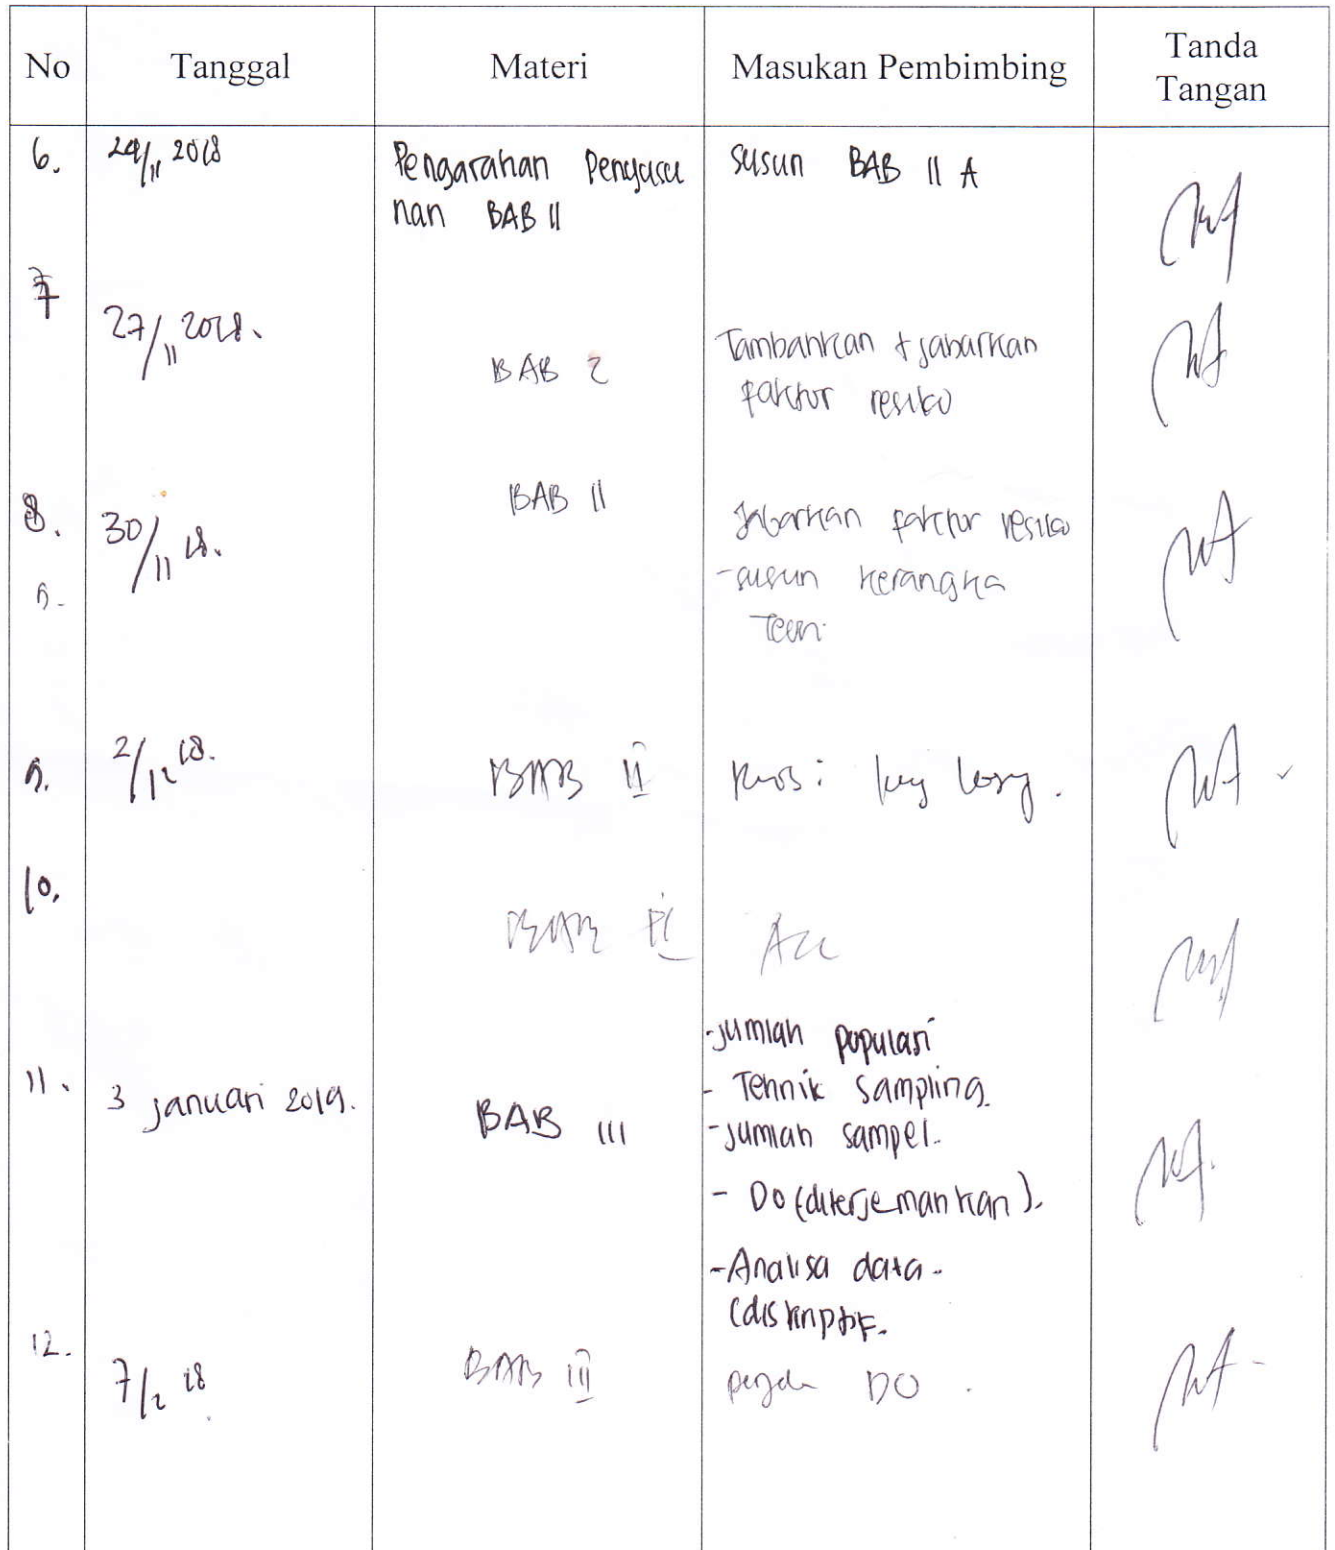 No Tanggal Materi Masukan Pembimbing Tanda
Tangan
6. 24/11 2018 Pengarahan Penyusu susun BAB II A
nan BAB II
7
27/11 2018. BAB 2 Tambahkan + jabarkan
faktor resiko
8. 30/11 18. BAB II Jabarkan faktor resiko
-susun kerangka
Teori.
9. 2/12 18. BAB II
10. BAB II Acc
-jumlah populasi
11. 3 januari 2019. BAB III - Tehnik sampling.
-jumlah sampel.
- DO (diterjemahkan).
-Analisa data-
(diskriptif.
12. 7/2 18 BAB III DO.